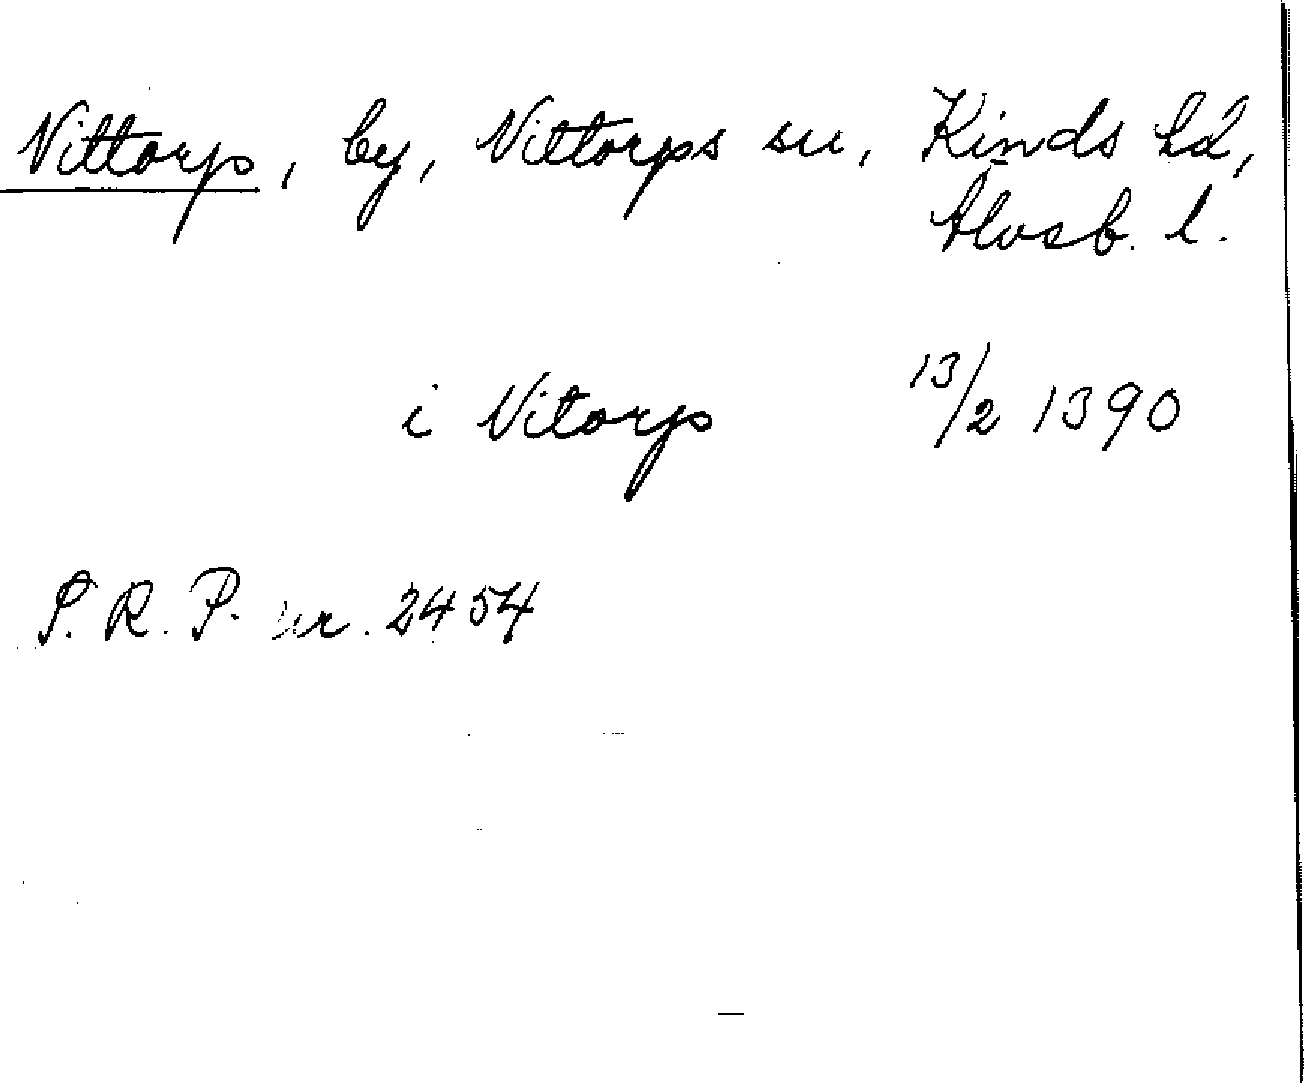 Nittorp, by, Nittorps sn, Kinds hd,
Älvsb. l.
i Nitorp 13/2 1390
S. R. P. nr. 2454